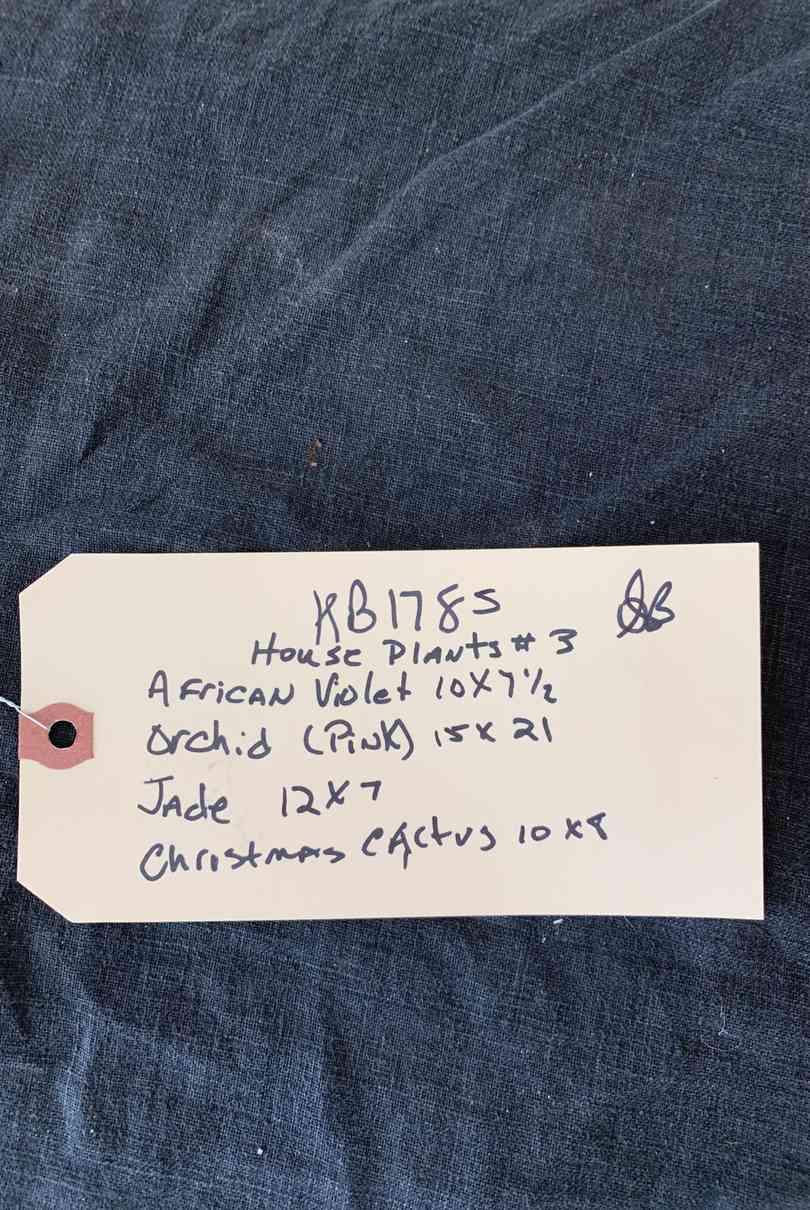 KB178S
House Plants # 3
African Violet 10X7 1/2
Orchid (Pink) 15X 21
Jade 12X7
Christmas Cactus 10 X8